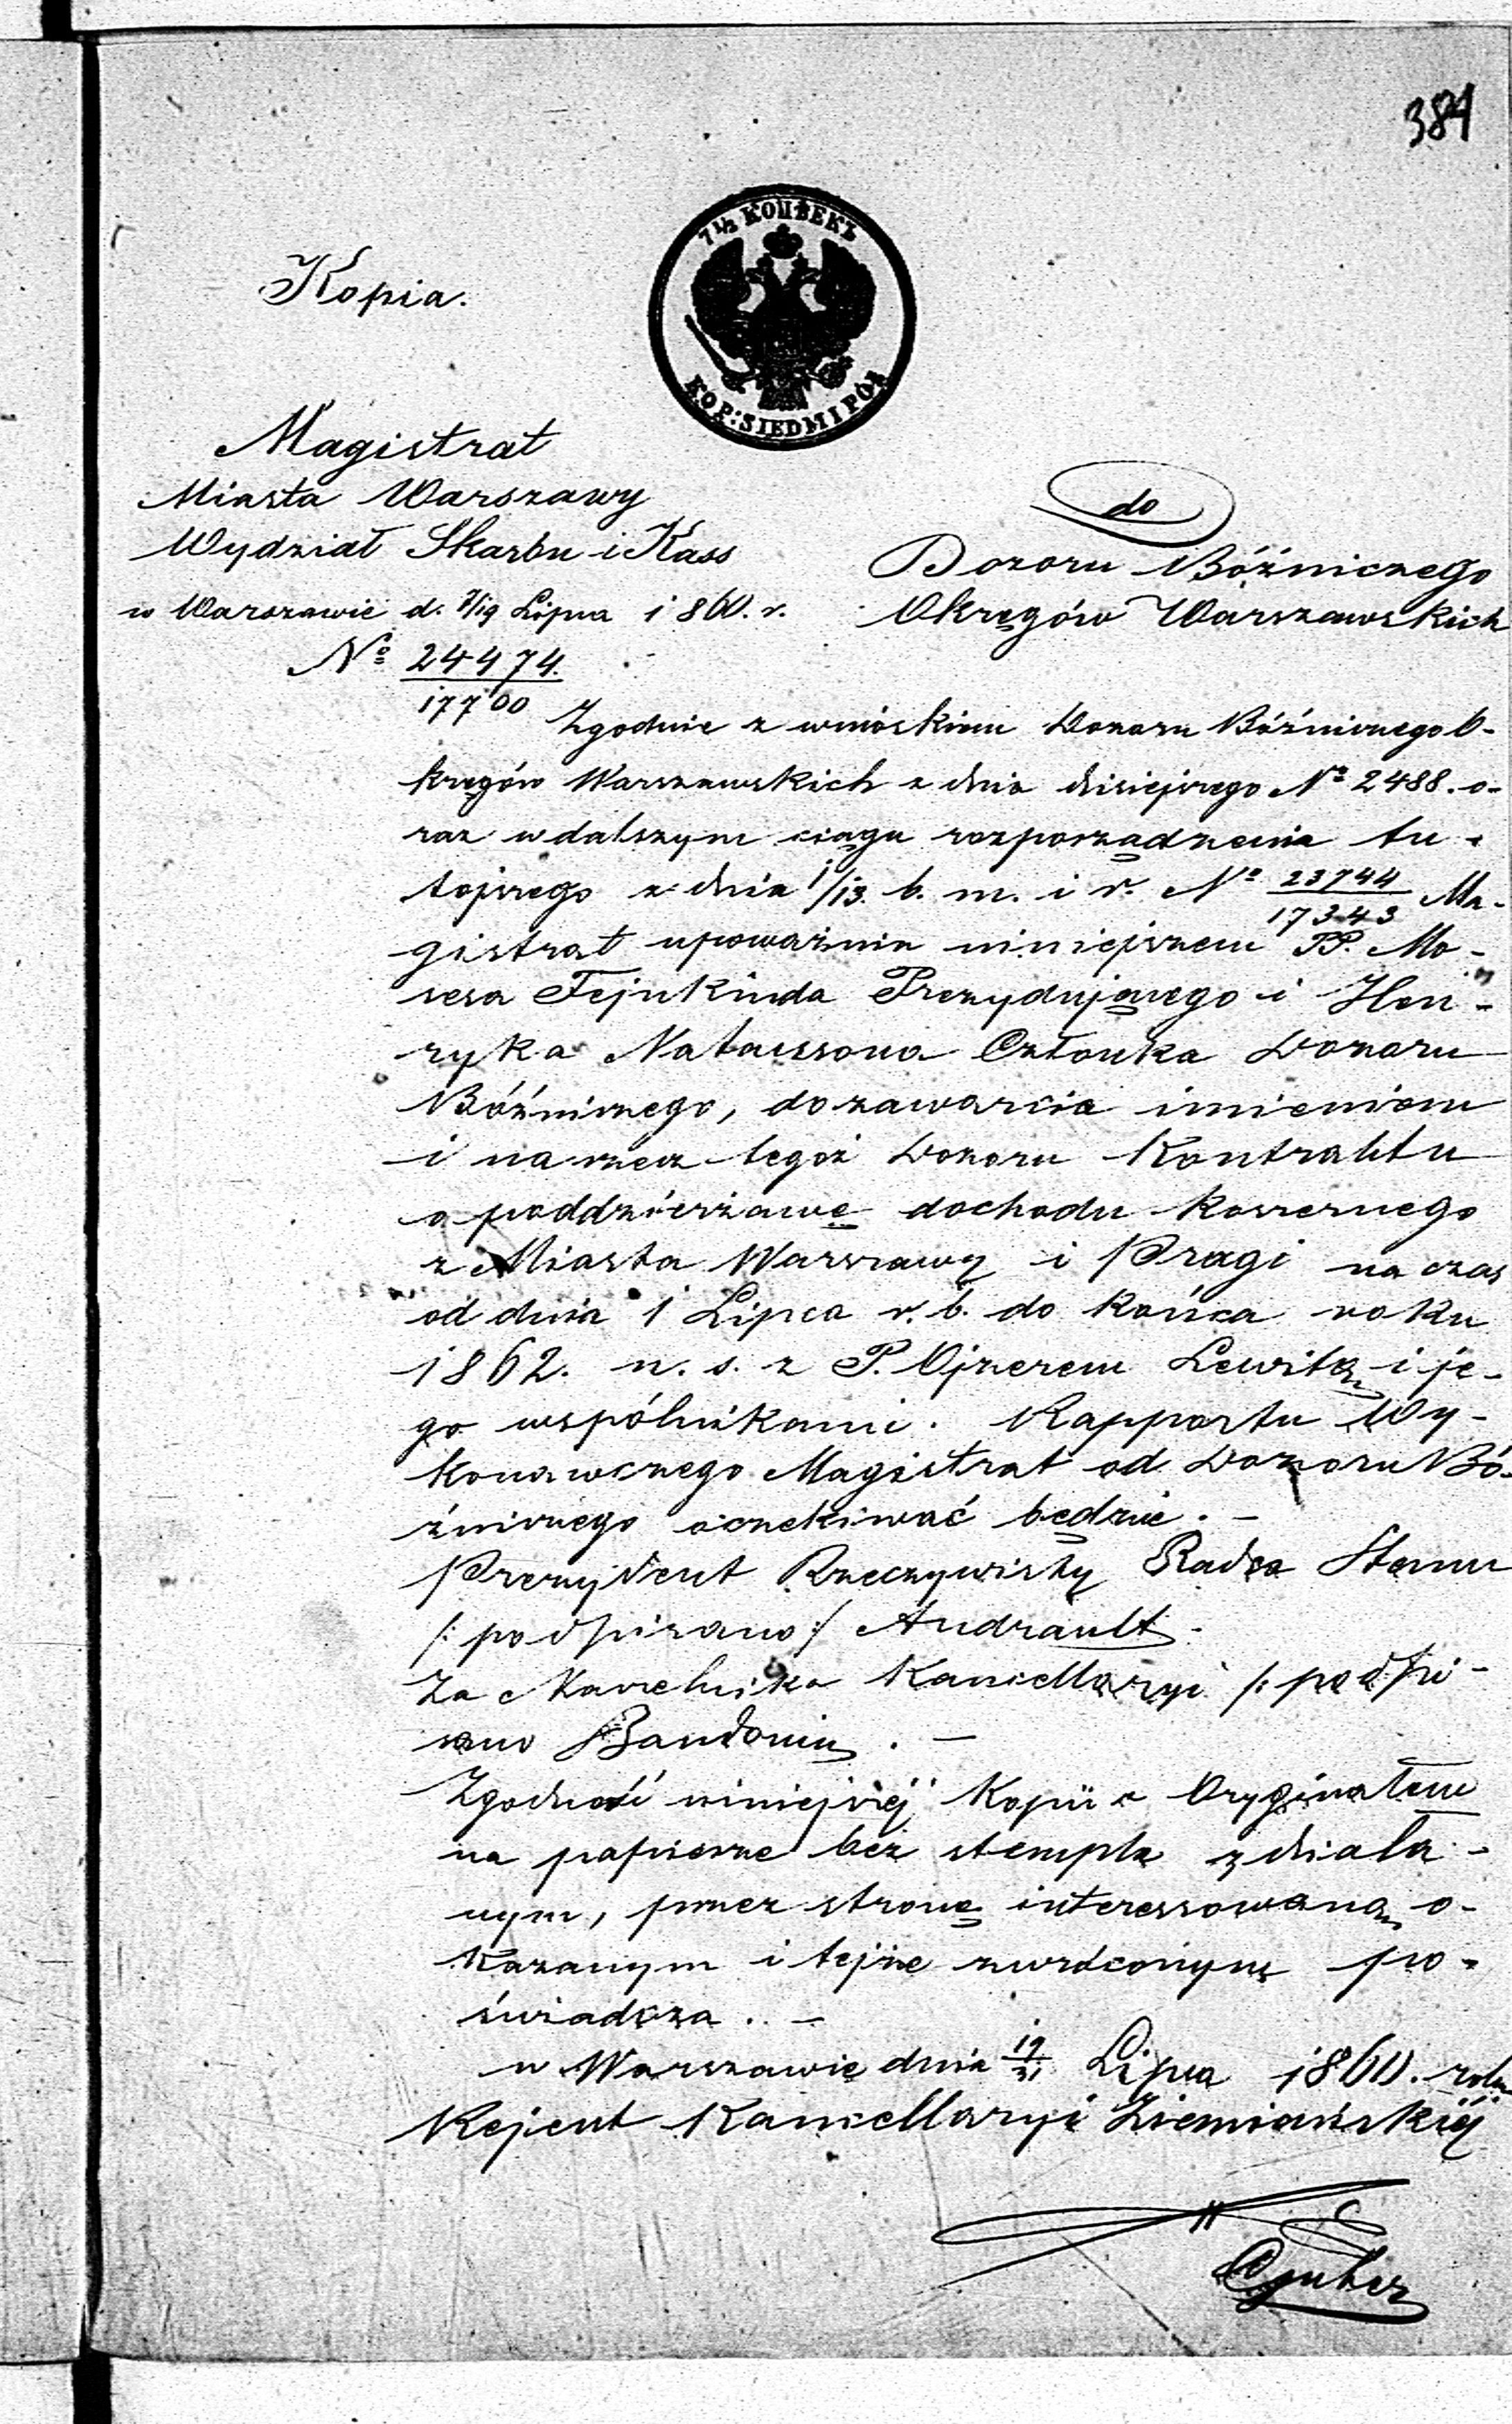 384
7½ КОПѢЕКЪ
KOP: SIEDM I PÓŁ
Kopia.
Magistrat
Miasta Warszawy
Wydział Skarbu i Kass
w Warszawie d. 7/19 Lipca 1860. r.
Nº 24474.
17700
do
Dozoru Bóźniczego
Okręgów Warszawskich
Zgodnie z wnioskiem Dozoru Bóźniczego O-
kręgów Warszawskich z dnia dzisiejszego Nº 2488. o-
raz w dalszym ciągu rozporządzenia tu-
tejszego z dnia 1/13. b. m. i r. Nº 23744/17343 Ma-
gistrat upoważnia niniejszem PP. Mo-
zesa Fejnkinda Prezydującego i Hen-
ryka Natansona Członka Dozoru
Bóźniczego, do zawarcia imieniem
i na rzecz tegoż Dozoru Kontraktu
o poddzierżawę dochodu koszernego
z Miasta Warszawy i Pragi na czas
od dnia 1 Lipca r. b. do końca roku
1862. n. s. z P. Ojzerem Lewitą i je-
go wspólnikami. Rapportu Wy-
konawczego Magistrat od Dozoru Bó-
źniczego oczekiwać będzie. -
Prezydent Rzeczywisty Radca Stanu
/: podpisano :/ Andrault.
Za Naczelnika Kancellaryi /: podpi-
sano Baudouin. -
Zgodność niniejszéj Kopii z Oryginałem
na papierze bez stempla zdziała-
nym, przez stronę interessowaną o-
kazanym i tejże zwróconym po-
świadcza. . -
w Warszawie dnia 19/31 Lipca 1860. roku
Rejent Kancellaryi Ziemiańskiéj